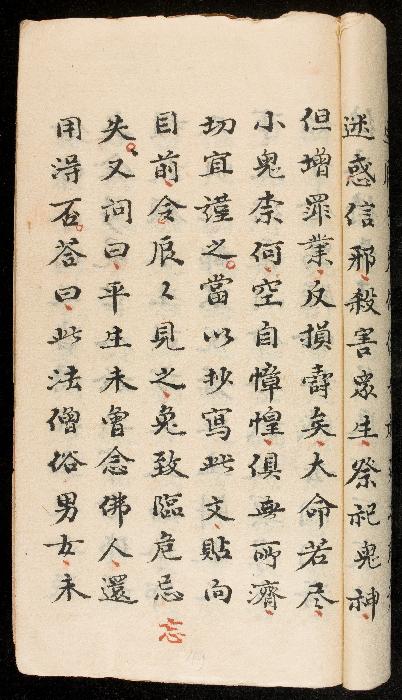 迷惑信邪殺害衆生祭祀鬼神
但增罪業反損壽矣大命若尽
小鬼柰何空自慞惶俱無所濟
切宜謹之當以抄寫此文貼向
目前令辰々見之免致臨危忌
忘
失又问曰平生未曾念佛人還
用淂否荅曰此法僧俗男女未